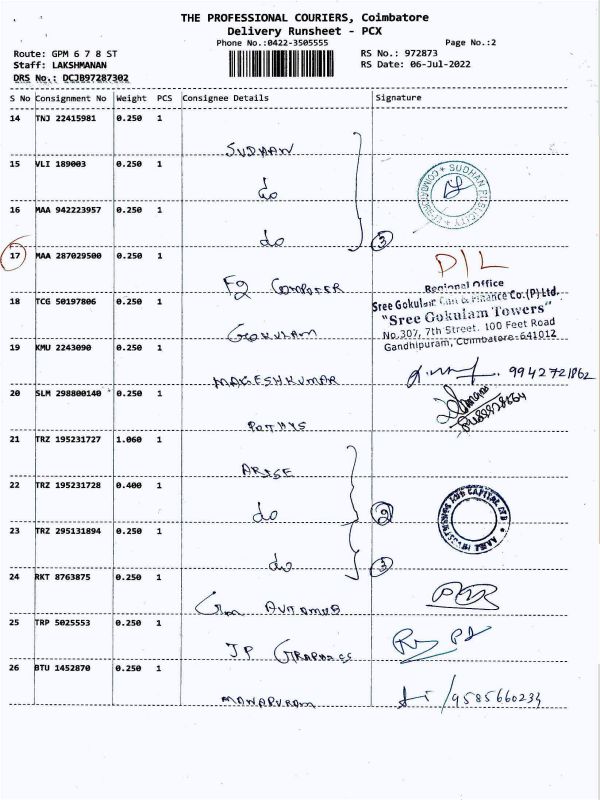 THE PROFESSIONAL COURIERS, Coimbatore
Delivery Runsheet - PCX
Phone No.:0422-3505555
Page No.:2
Route: GPM 6 7 8 ST
RS No.: 972873
Staff: LAKSHMANAN
RS Date: 06-Jul-2022
DRS No.: DCJB97287302
S No Consignment No Weight PCS Consignee Details Signature
14 TNJ 22415981 0.250 1
SUDHAN
15 VLI 189003 0.250 1
do
SUDHAN PUBLICITY COIMBATORE
16 MAA 942223957 0.250 1
do 3
17 MAA 287029500 0.250 1
D/L
F2 COMPUTER
Regional Office
18 TCG 50197806 0.250 1
Sree Gokulam Chit & Finance Co.(P) Ltd.
"Sree Gokulam Towers"
GOKULAM
No.307, 7th Street. 100 Feet Road
Gandhipuram, Coimbatore-641012
19 KMU 2243090 0.250 1
MAGESHKUMAR
9942721862
20 SLM 298800140 0.250 1
POTHYS
21 TRZ 195231727 1.060 1
ARISE
22 TRZ 195231728 0.400 1
do 2
23 TRZ 295131894 0.250 1
do 3
24 RKT 8763875 0.250 1
25 TRP 5025553 0.250 1
JP GRAPHICS
26 BTU 1452870 0.250 1
MANAPURAM
9585660234